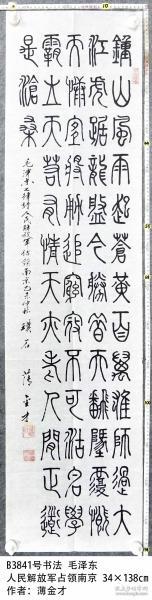 鐘山風雨起蒼黃百萬雄師過大
江虎踞龍盤今勝昔天翻地覆慨
而慷宜將剩勇追窮寇不可沽名學
霸王天若有情天亦老人間正道
是滄桑
毛澤東七律詩人民解放軍佔領南京
薄金才
B3841号书法 毛泽东
人民解放军占领南京 34×138cm
作者: 薄金才